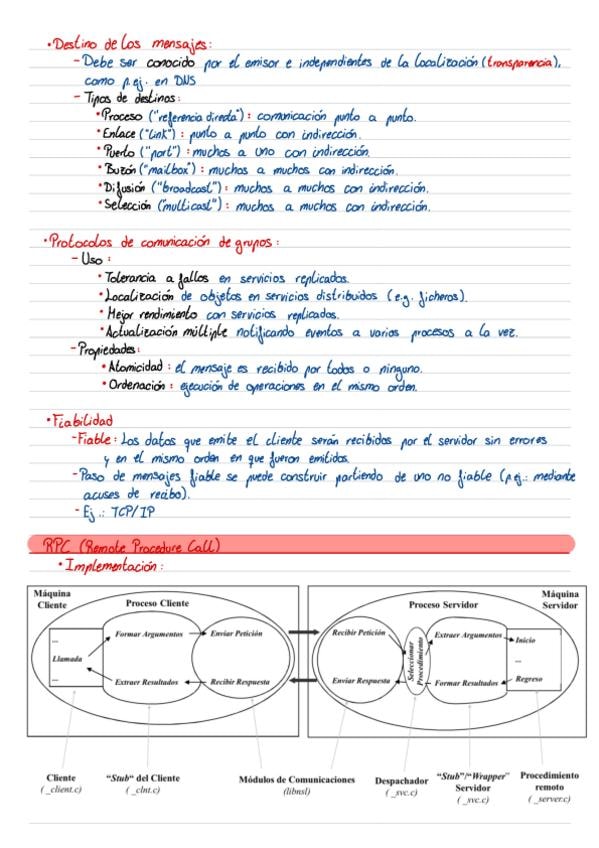 • Destino de los mensajes:
- Debe ser conocido por el emisor e independientes de la localización (transparencia),
como p.ej. en DNS
- Tipos de destinos:
• Proceso ("referencia directa"): comunicación punto a punto.
• Enlace ("link"): punto a punto con indirección.
• Puerto ("port"): muchos a uno con indirección.
• Buzón ("mailbox"): muchos a muchos con indirección.
• Difusión ("broadcast"): muchos a muchos con indirección.
• Selección ("multicast"): muchos a muchos con indirección.
• Protocolos de comunicación de grupos:
- Uso:
• Tolerancia a fallos en servicios replicados.
• Localización de objetos en servicios distribuidos (e.g. ficheros).
• Mejor rendimiento con servicios replicados.
• Actualización múltiple notificando eventos a varios procesos a la vez.
- Propiedades:
• Atomicidad: el mensaje es recibido por todos o ninguno.
• Ordenación: ejecución de operaciones en el mismo orden.
• Fiabilidad
- Fiable: Los datos que emite el cliente serán recibidos por el servidor sin errores
y en el mismo orden en que fueron emitidos.
- Paso de mensajes fiable se puede construir partiendo de uno no fiable (p.ej.: mediante
acuses de recibo).
- Ej.: TCP/IP
RPC (Remote Procedure Call)
• Implementación:
Máquina Cliente
Proceso Cliente
...
Llamada
...
Formar Argumentos
Enviar Petición
Extraer Resultados
Recibir Respuesta
Máquina Servidor
Proceso Servidor
Recibir Petición
Enviar Respuesta
Seleccionar Procedimiento
Extraer Argumentos
Formar Resultados
Inicio
...
Regreso
Cliente
(_client.c)
"Stub" del Cliente
(_clnt.c)
Módulos de Comunicaciones
(libnsl)
Despachador
(_svc.c)
"Stub"/"Wrapper"
Servidor
(_svc.c)
Procedimiento
remoto
(_server.c)